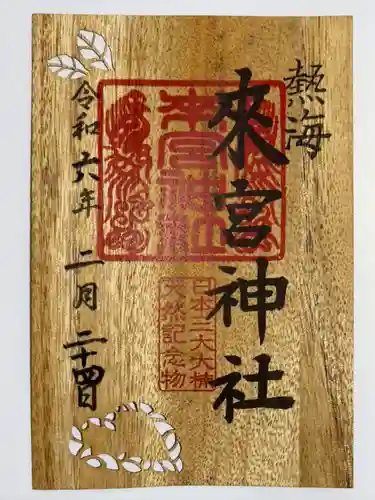 熱海
來宮神社
來宮神社
日本三大大楠
天然記念物
令和六年二月二十四日